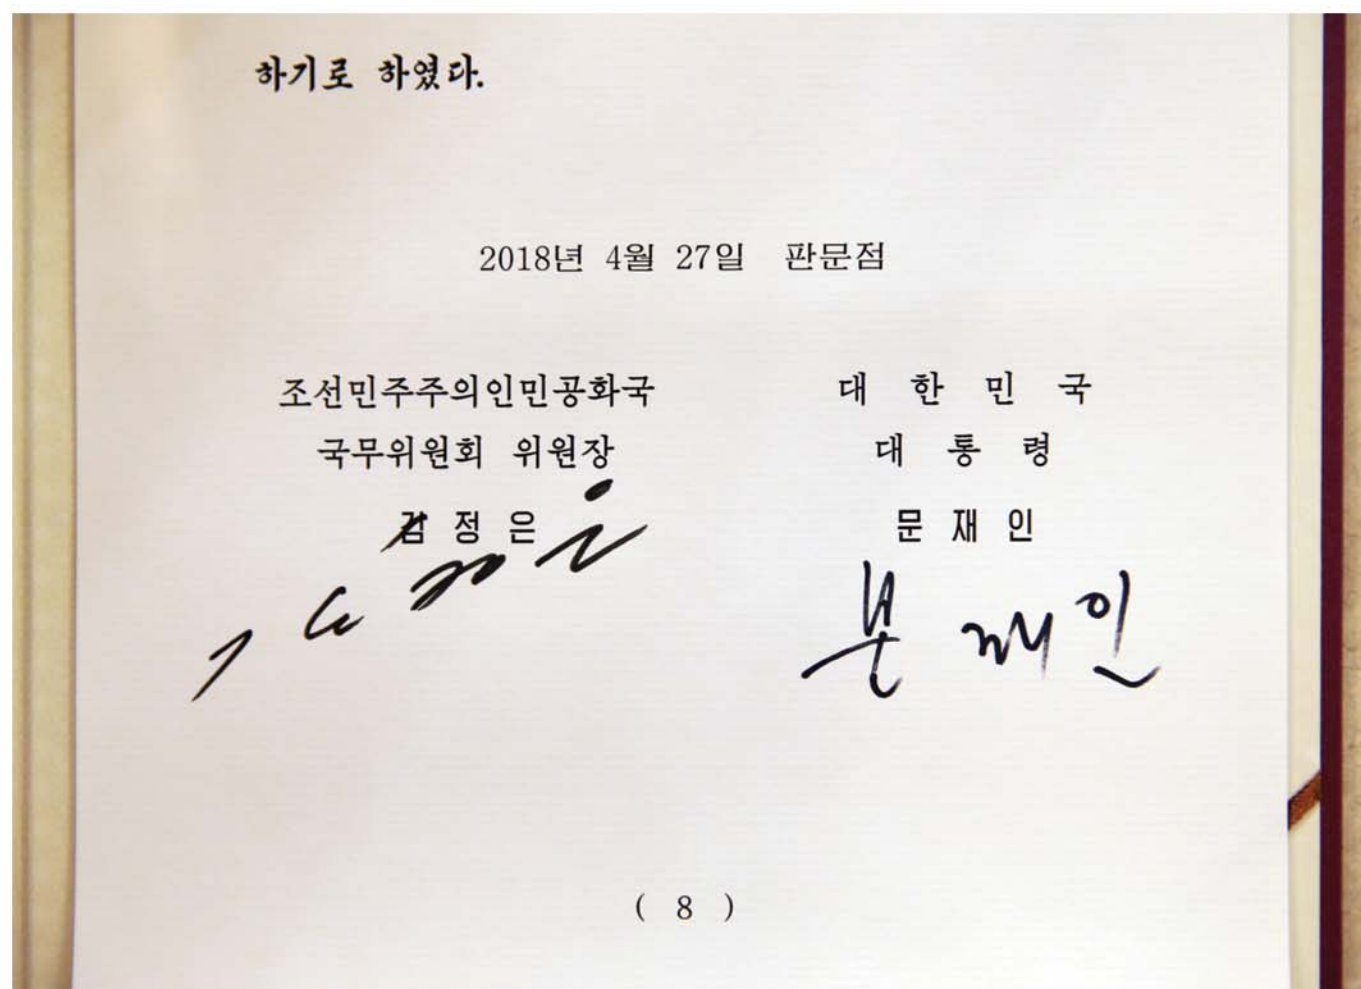 하기로 하였다.
2018년 4월 27일 판문점
조선민주주의인민공화국
국무위원회 위원장
김 정 은
대 한 민 국
대 통 령
문 재 인
문 재 인
( 8 )